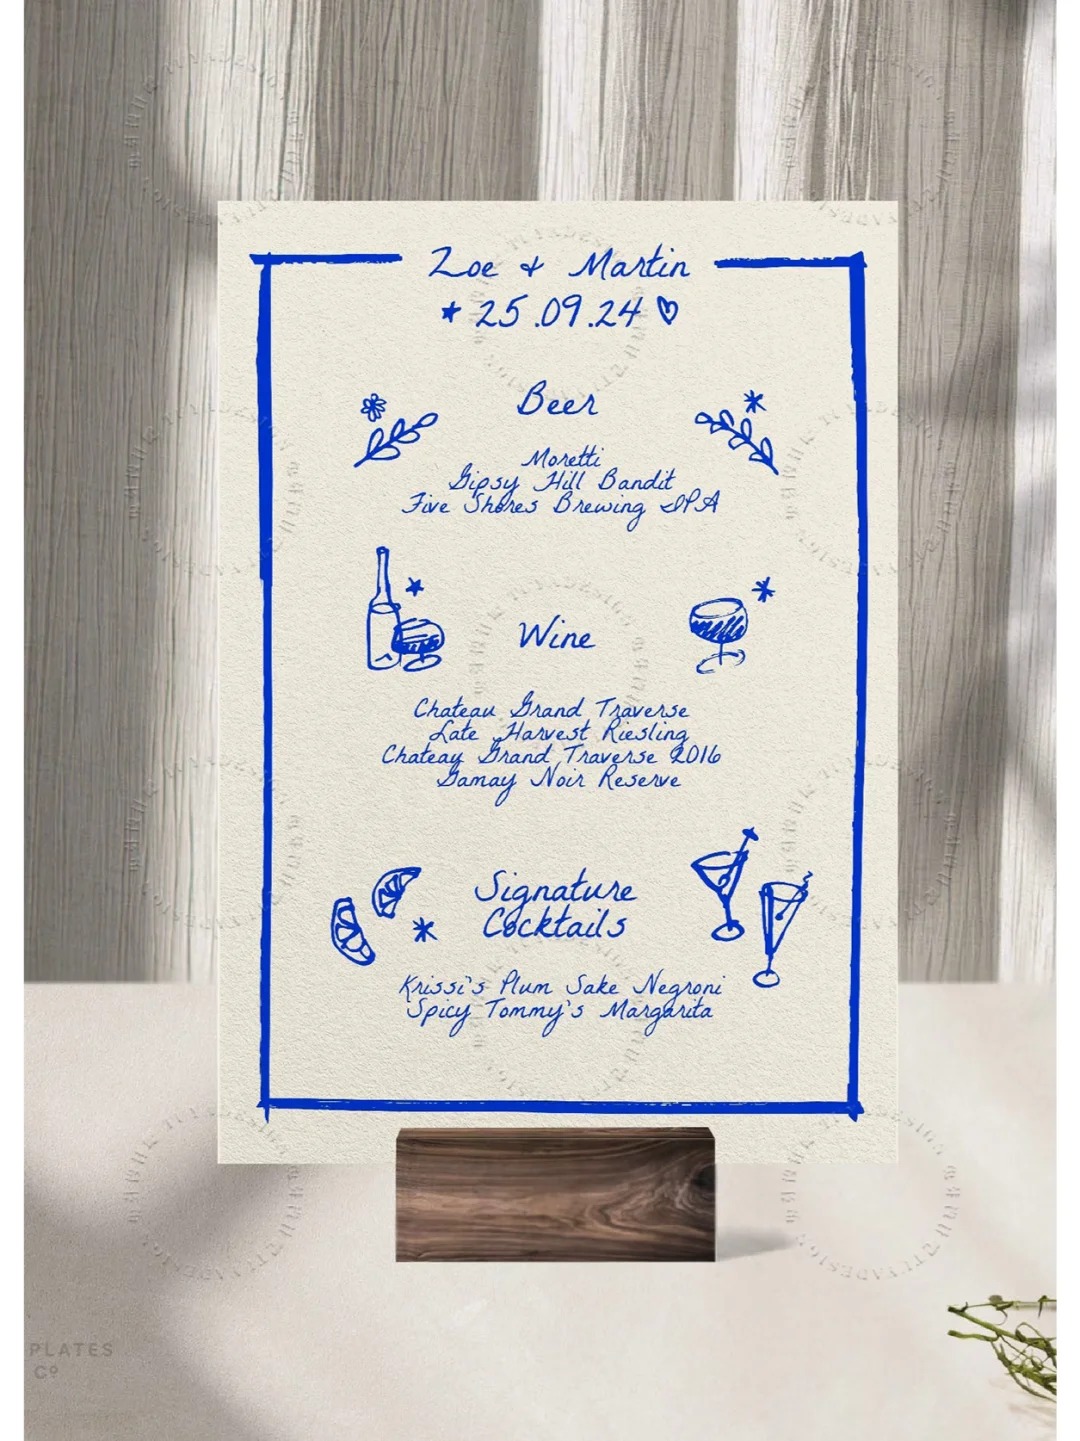 Zoe & Martin
25.09.24
Beer
Moretti
Gipsy Hill Bandit
Five Shores Brewing IPA
Wine
Chateau Grand Traverse
Late Harvest Riesling
Chateay Grand Traverse 2016
Gamay Noir Reserve
Signature
Cocktails
Krissi's Plum Sake Negroni
Spicy Tommy's Margarita
PLATES
Cº